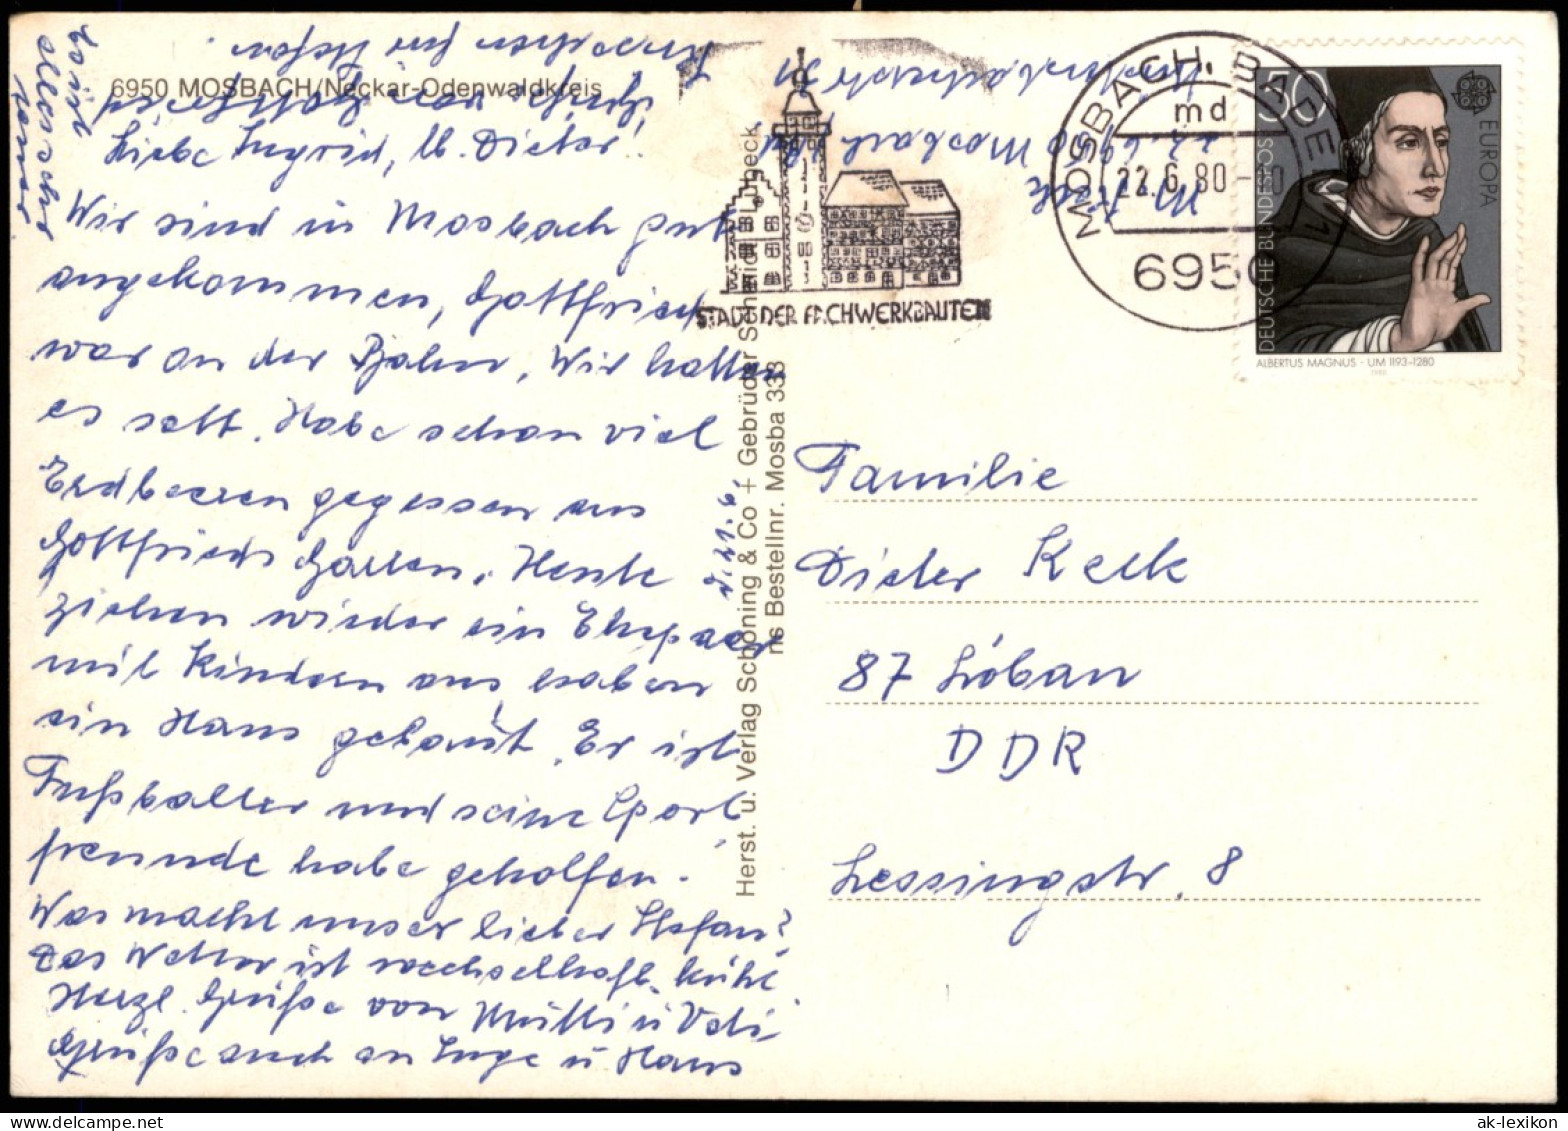 6950 MOSBACH/Neckar-Odenwaldkreis
Liebe Ingrid, lb. Dieter!
Wir sind in Mosbach gut
angekommen, Gottfried
war an der Bahn, Wir hatten
es satt. Habe schon viel
Erdbeeren gegessen aus
Gottfrieds Garten. Heute
ziehen wieder ein Ehepaar
mit Kindern aus, haben
ein Haus gebaut. Er ist
Fußballer und seine Sport
freunde habe geholfen.
Was macht unser lieber Stefan?
Das Wetter ist wechselhaft kühl
Herzl. Grüße von Mutti u Vati
Grüße auch an Inge u Hans
d. 21.6.
Herst. u. Verlag Schöning & Co + Gebrüder Schmidt Lübeck
ns Bestellnr. Mosba 333
STADT DER FACHWERKBAUTEN
MOSBACH, BADEN 1
md
22.6.80-10
6950
50
DEUTSCHE BUNDESPOST
EUROPA
ALBERTUS MAGNUS · UM 1193-1280
1980
Familie
Dieter Keck
87 Löbau
DDR
Lessingstr. 8
ak-lexikon